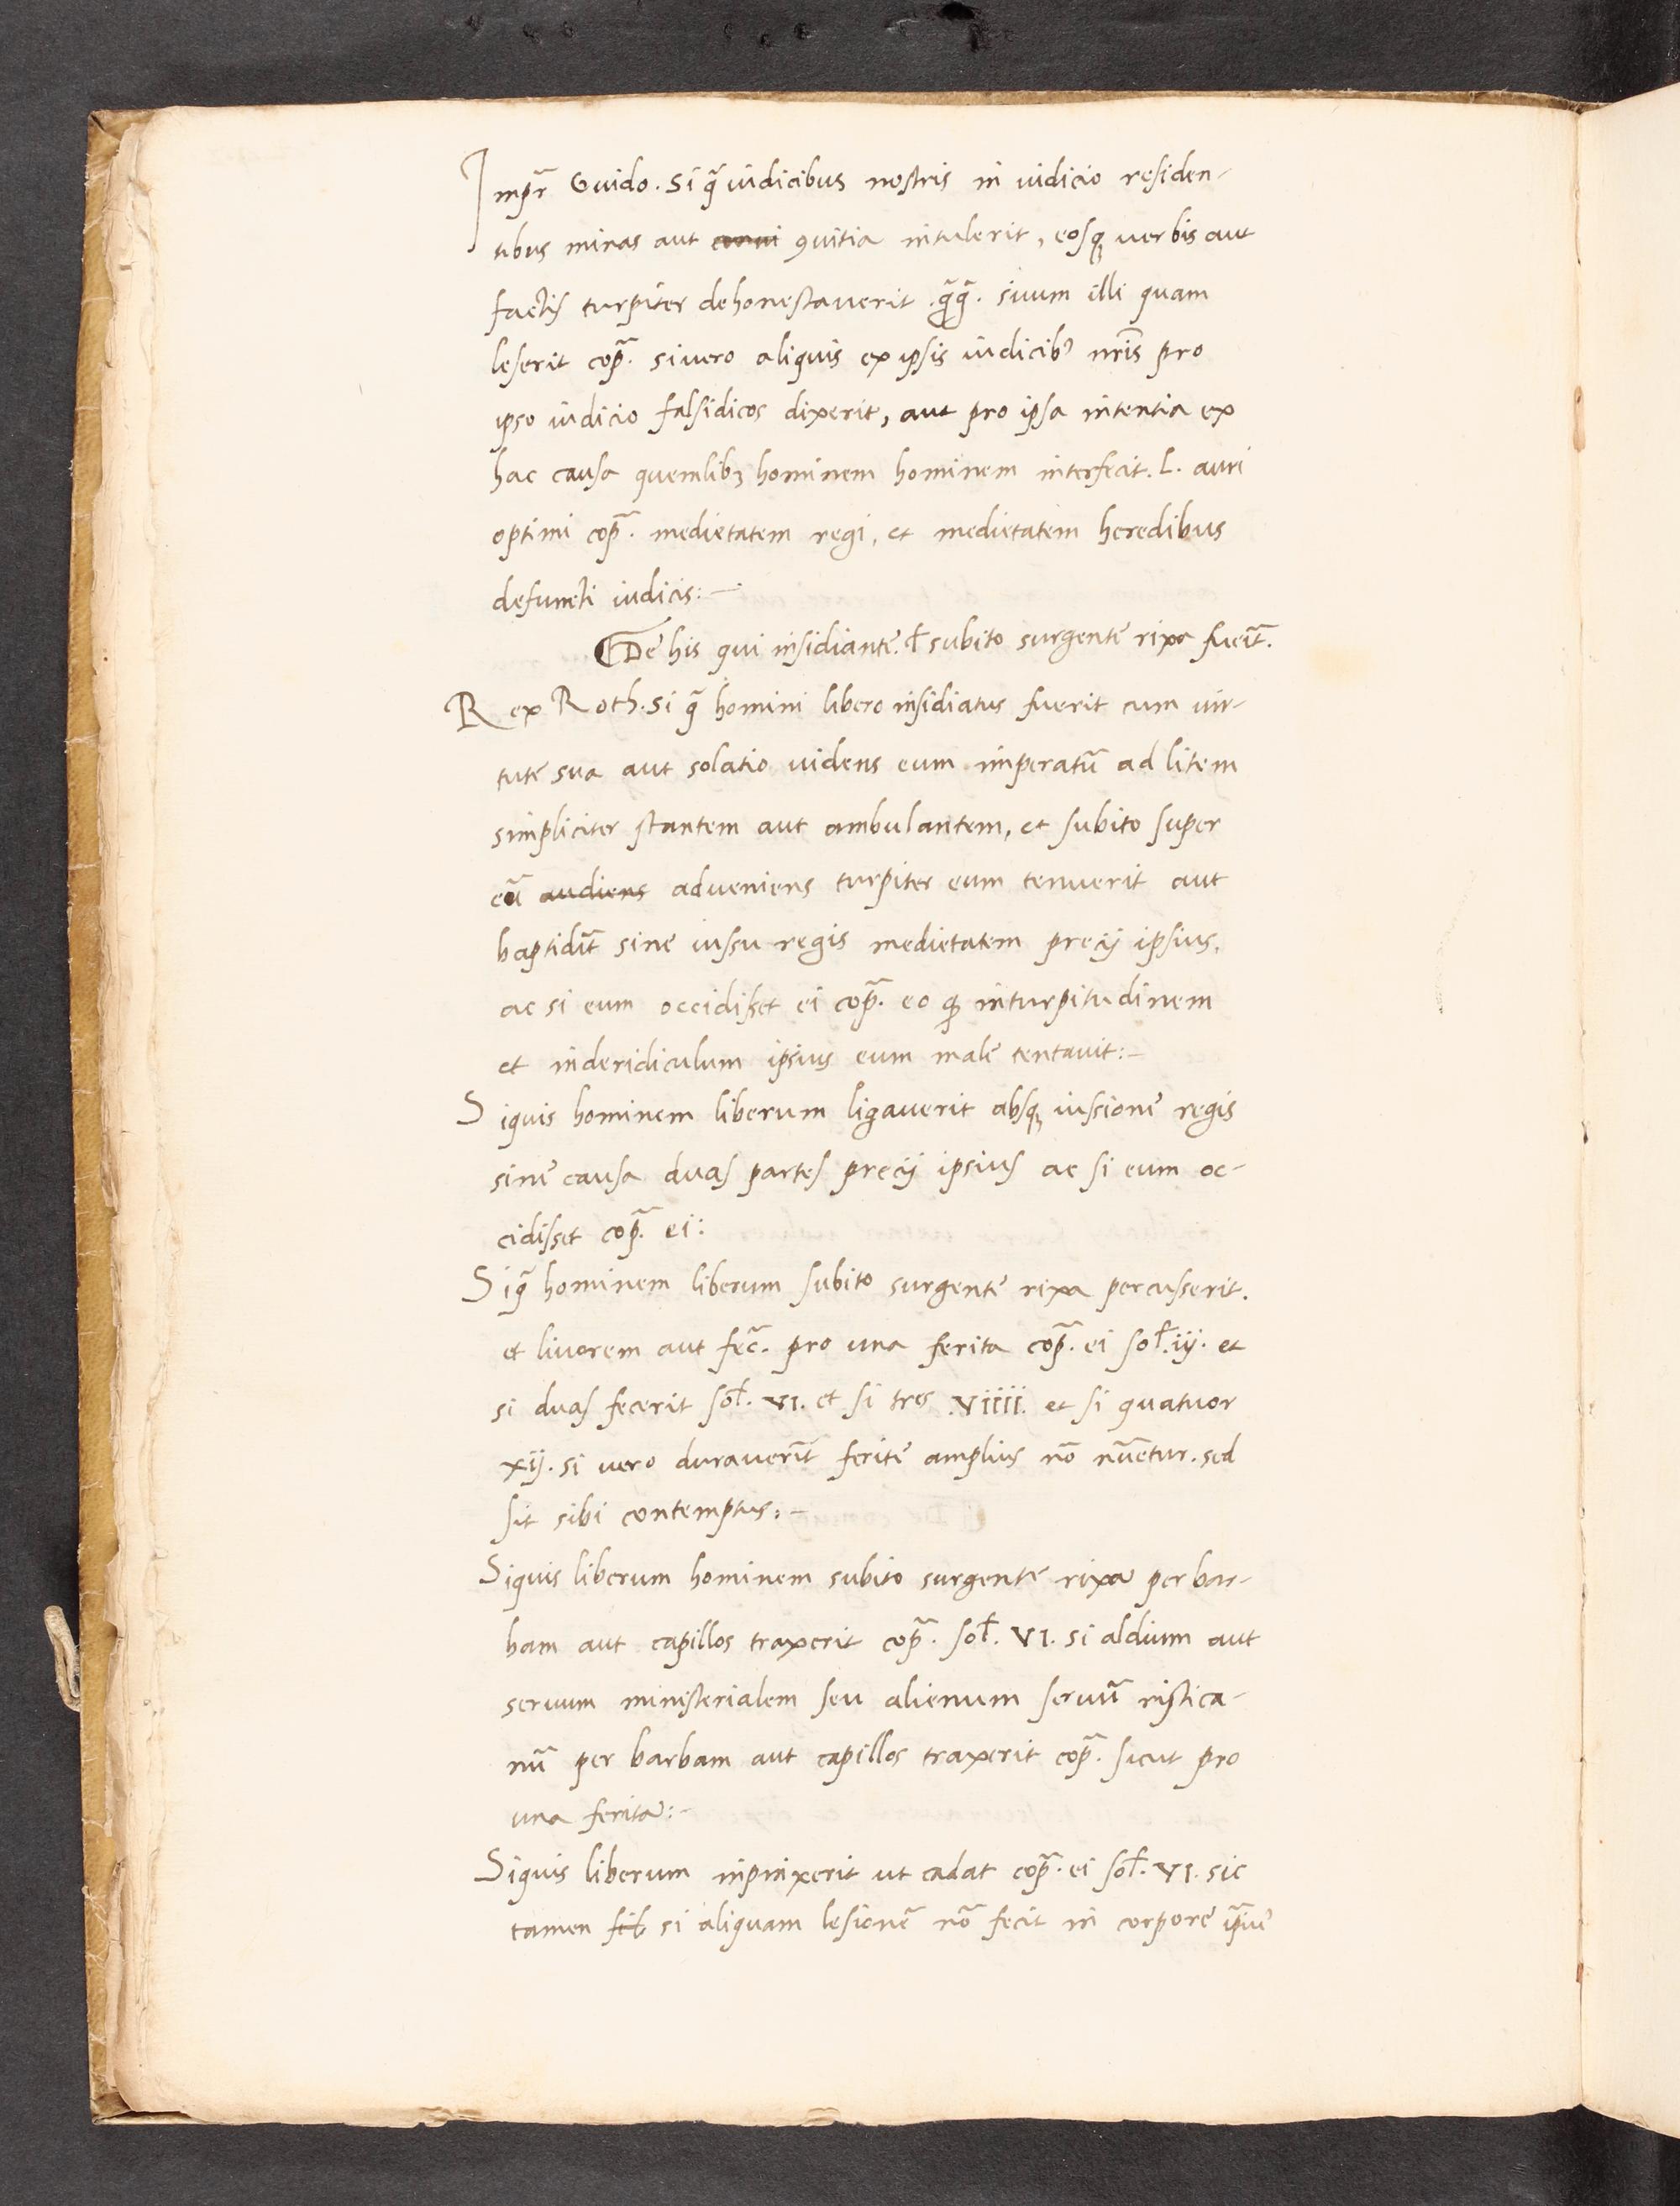 Imp̄r Guido. Si q̄ iudicibus nostris in iudicio residen-
tibus minas aut conui ꝯuitia intulerit, eosq; uerbis aut
factis turpiter dehonestauerit .q̄q̄. suum illi quam
leserit cōp̄. si uero aliquis ex ipsis iudicib⁹ nr̄is pro
ipso iudicio falsidicos dixerit, aut pro ipsa intentia ex
hac causa quemlibꝫ hominem hominem interfecit. L. auri
optimi cōp̄. medietatem regi, et medietatem heredibus
defuncti iudicis:-
De his qui insidiante. ł subito surgente rixa fuēit.
Rex Roth. Si q̄ homini libero insidiatus fuerit cum uir-
tute sua aut solatio uidens eum imperatū ad litem
simpliciter stantem aut ambulantem, et subito super
eū audiens adueniens turpiter eum tenuerit aut
baptidīt sine iussu regis medietatem precij ipsius,
ac si eum occidisset ei cōp̄. eo ꝙ inturpitudinem
et inderidiculum ipsius eum male tentauit:-
Siquis hominem liberum ligauerit absq; iussione regis
sine causa duas partes precij ipsius ac si eum oc-
cidisset cōp̄. ei:
Siq̄ hominem liberum subito surgente rixa percusserit.
et liuorem aut fec̄. pro una ferita cōp̄. ei soł. iij. et
si duas fecerit soł. VI. et si tres .VIIII. et si quatuor
xij. si uero durauerīt ferite amplius nō nūetur. sed
sit sibi contemptus:-
Siquis liberum hominem subito surgente rixa per bar-
bam aut capillos traxerit cōp̄. soł. VI. si aldium aut
seruum ministerialem seu alienum seruū ristica-
nū per barbam aut capillos traxerit cōp̄. sicut pro
una ferita:-
Siquis liberum inpinxerit ut cadat cōp̄. ei soł. VI. sic
tamen si aliquam lesionē nō fecit in corpore ip̄ius